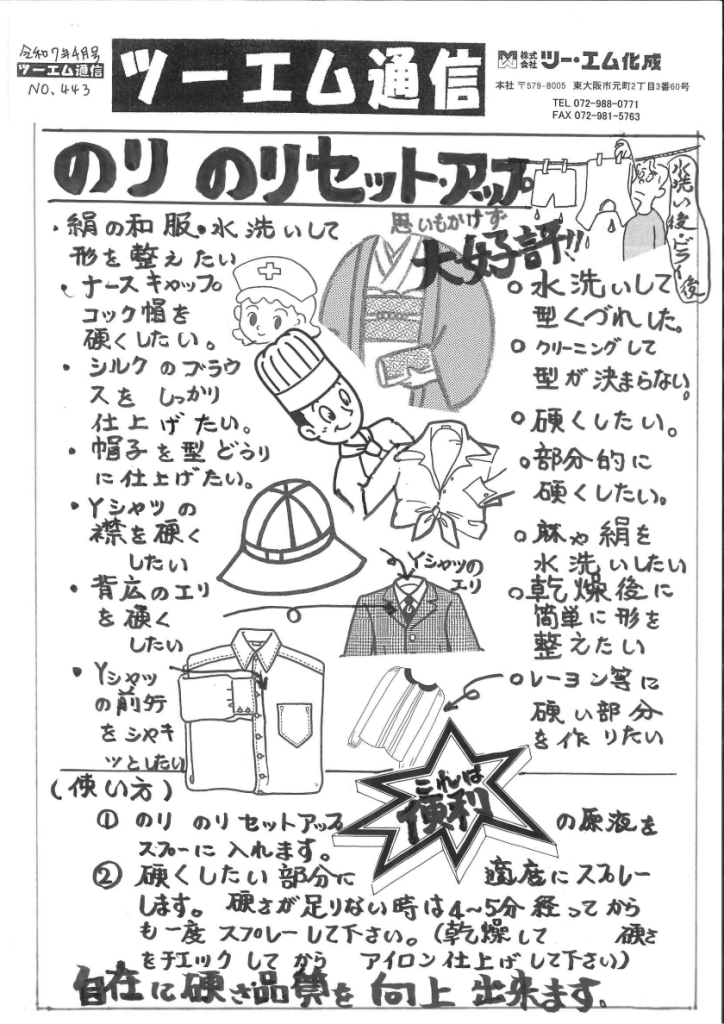 令和7年4月号
ツーエム通信
NO.443
ツーエム通信
株式会社 ツー・エム化成
本社 〒579-8005 東大阪市元町2丁目3番60号
TEL 072-988-0771
FAX 072-981-5763
のり のりセット・アップ
水洗い後・ドライ後
思いもかけず
大好評!!
・絹の和服・水洗いして
形を整えたい
・ナースキャップ
コック帽を
硬くしたい。
・シルクのブラウ
スを しっかり
仕上げたい。
・帽子を型どうり
に仕上げたい。
・Yシャツの
襟を硬く
したい
・背広のエリ
を硬く
したい
・Yシャツ
の前タテ
をシャキ
ッとしたい
Yシャツの
エリ
○水洗いして
型くづれした。
○クリーニングして
型が決まらない。
○硬くしたい。
○部分的に
硬くしたい。
○麻や絹を
水洗いしたい
○乾燥後に
簡単に形を
整えたい
○レーヨン等に
硬い部分
を作りたい
これは
便利
(使い方)
① のり のりセットアップ の原液を
スプーに入れます。
② 硬くしたい部分に 適度にスプレー
します。硬さが足りない時は4~5分経ってから
も一度スプレーして下さい。(乾燥して 硬さ
をチエックしてから アイロン仕上げして下さい)
自在に硬さ品質を向上出来ます。